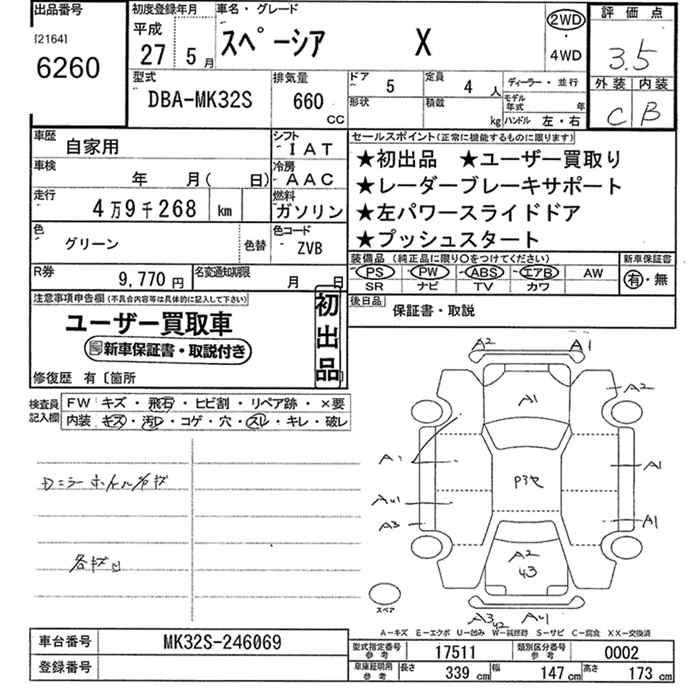 出品番号
[2164]
6260
初度登録年月
平成
27 5月
車名・グレード
スペーシア X
2WD
・
4WD
評価点
3.5
外装 内装
C B
型式
DBA-MK32S
排気量
660
CC
ドア
5
定員
4 人
形状
積載
kg
ディーラー・並行
モデル年式 年
ハンドル 左・右
車歴
自家用
シフト
IAT
車検
年 月( 日)
冷房
AAC
走行
4万9千268 km
燃料
ガソリン
色
グリーン
色替
色コード
ZVB
R券
9,770円
名変通知期限
月 日
セールスポイント(正常に機能するものに限ります)
★初出品 ★ユーザー買取り
★レーダーブレーキサポート
★左パワースライドドア
★プッシュスタート
装備品(純正品に限り○をつけてください)
新車保証書
PS PW ABS エアB AW
有・無
SR ナビ TV カワ
後日品
保証書・取説
注意事項申告欄(不具合内容等は具体的に記入して下さい)
ユーザー買取車
新車保証書・取説付き
初出品
修復歴 有〔箇所
検査員記入欄
FW キズ・飛石・ヒビ割・リペア跡・×要
内装 キズ・汚レ・コゲ・穴・スレ・キレ・破レ
A2 A1
A1 A2
A1 A1
P3セ
AU1
A3 A1
A2
U3
A3 U2 AU1
スペア
A－キズ E－エクボ U－凹み W－純修跡 S－サビ C－腐食 XX－交換済
車台番号
MK32S-246069
登録番号
型式指定番号
参考
17511
類別区分番号
参考
0002
車庫証明用
参考
長さ 339 cm
幅 147 cm
高さ 173 cm